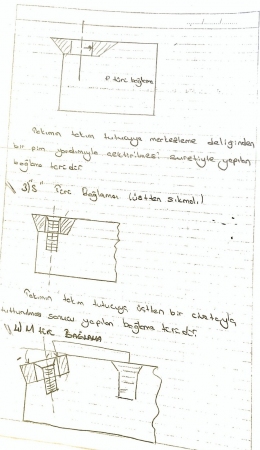 P türü bağlama
Takımın takım tutucuya merkezleme deliğinden
bir pim yardımıyla çektirilmesi suretiyle yapılan
bağlama tarzıdır.
3) "S" Türü Bağlama (üstten sıkmalı)
Takımın takım tutucuya üstten bir civatayla
tutturulması sonucu yapılan bağlama tarzıdır.
4) M tür BAĞLAMA